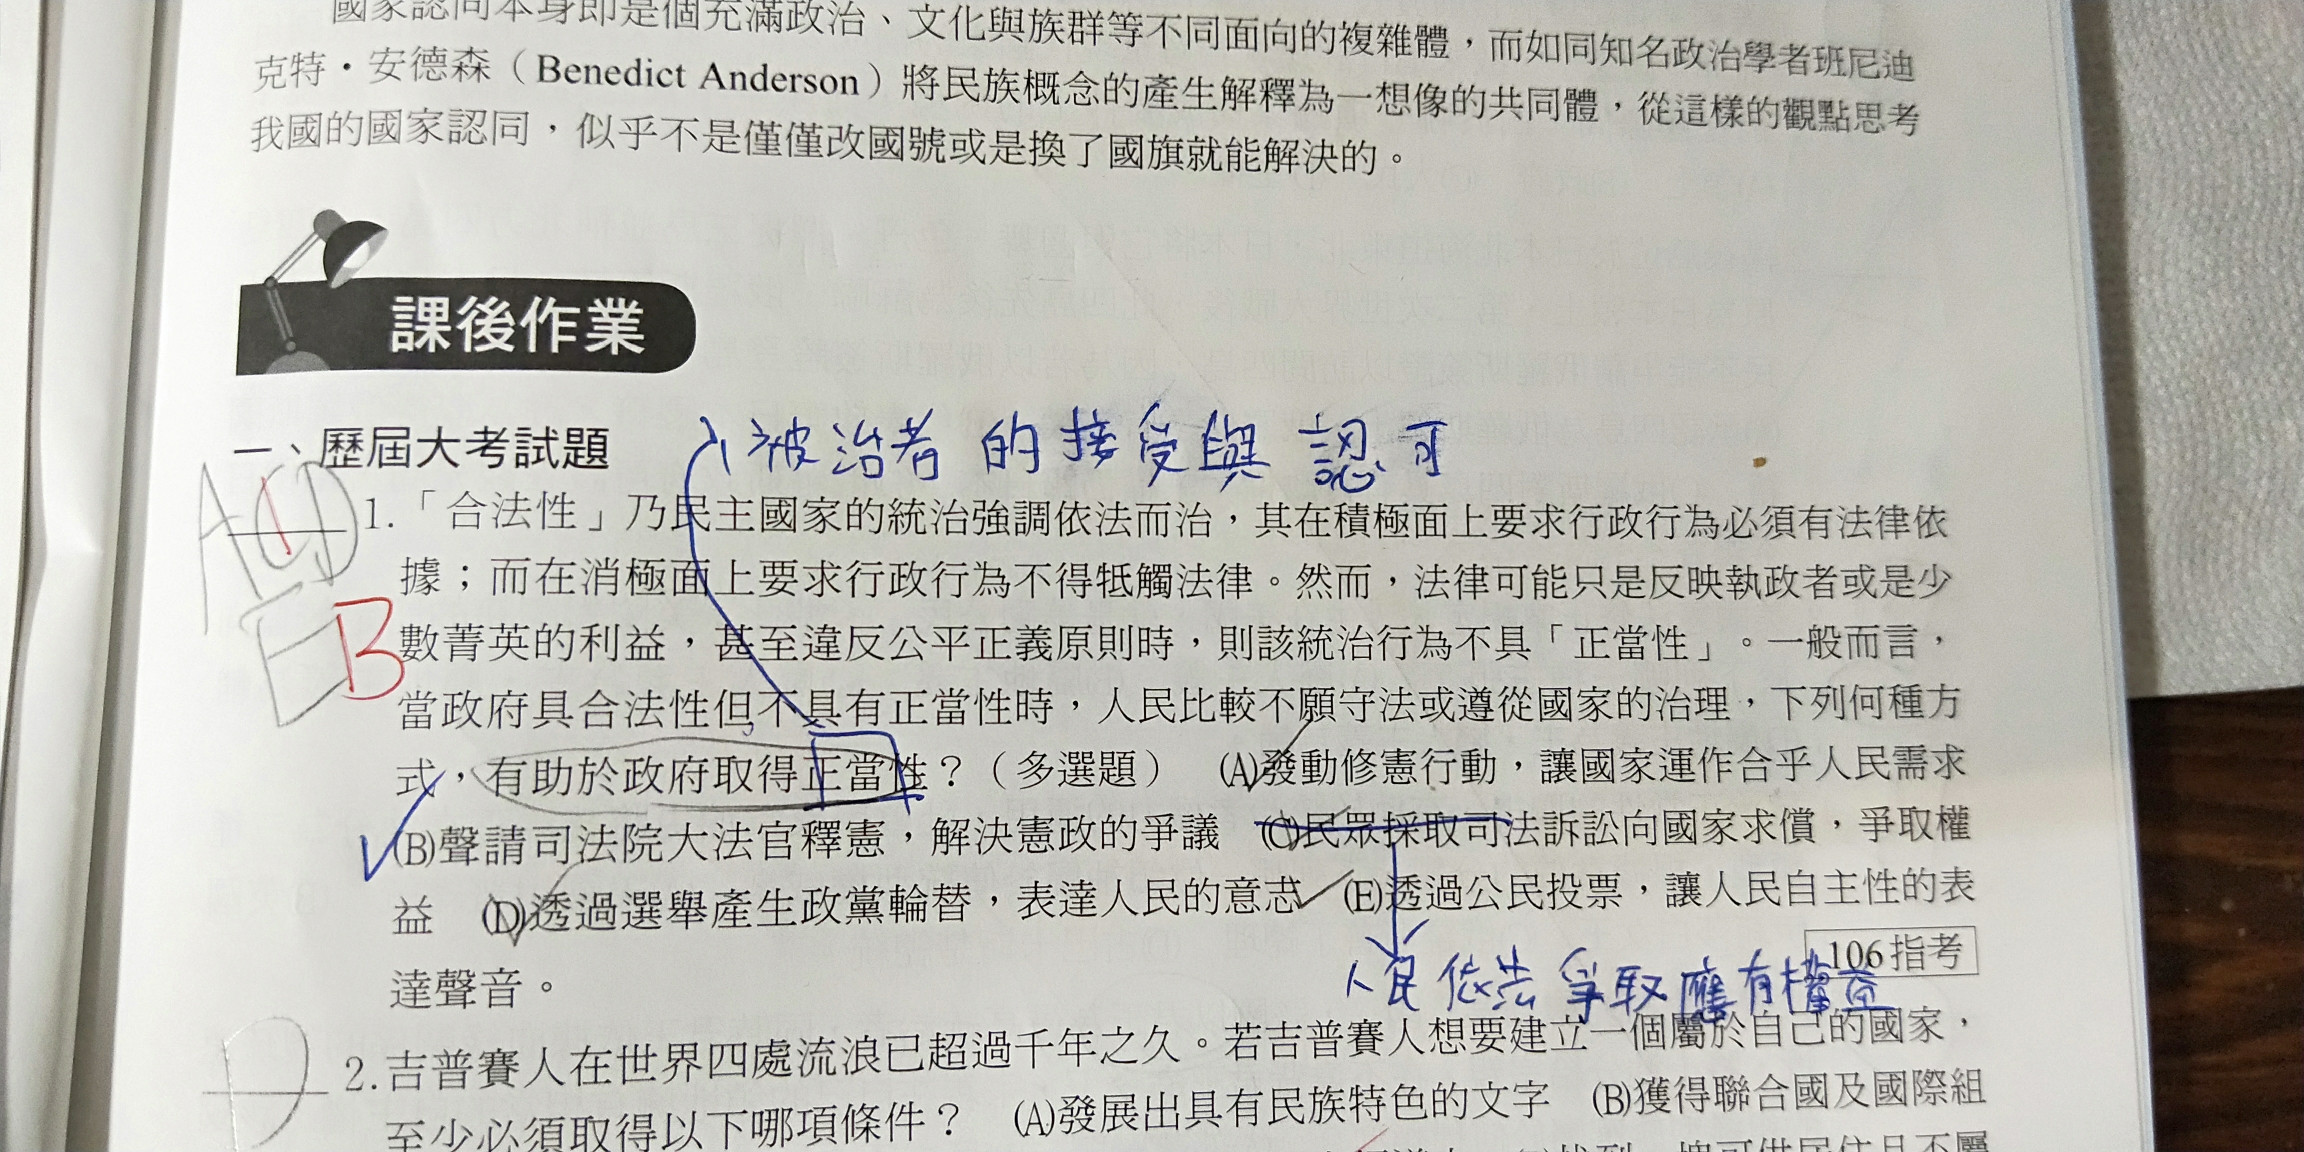 國家認同本身即是個充滿政治、文化與族群等不同面向的複雜體，而如同知名政治學者班尼迪
克特·安德森（Benedict Anderson）將民族概念的產生解釋為一想像的共同體，從這樣的觀點思考
我國的國家認同，似乎不是僅僅改國號或是換了國旗就能解決的。
課後作業
一、歷屆大考試題
被治者的接受與認可
ACD
E B
1.「合法性」乃民主國家的統治強調依法而治，其在積極面上要求行政行為必須有法律依
據；而在消極面上要求行政行為不得牴觸法律。然而，法律可能只是反映執政者或是少
數菁英的利益，甚至違反公平正義原則時，則該統治行為不具「正當性」。一般而言，
當政府具合法性但不具有正當性時，人民比較不願守法或遵從國家的治理，下列何種方
式，有助於政府取得正當性？（多選題） (A)發動修憲行動，讓國家運作合乎人民需求
(B)聲請司法院大法官釋憲，解決憲政的爭議 (C)民眾採取司法訴訟向國家求償，爭取權
益 (D)透過選舉產生政黨輪替，表達人民的意志 (E)透過公民投票，讓人民自主性的表
達聲音。 106指考
人民依法爭取應有權益
D
2.吉普賽人在世界四處流浪已超過千年之久。若吉普賽人想要建立一個屬於自己的國家，
至少必須取得以下哪項條件？ (A)發展出具有民族特色的文字 (B)獲得聯合國及國際組